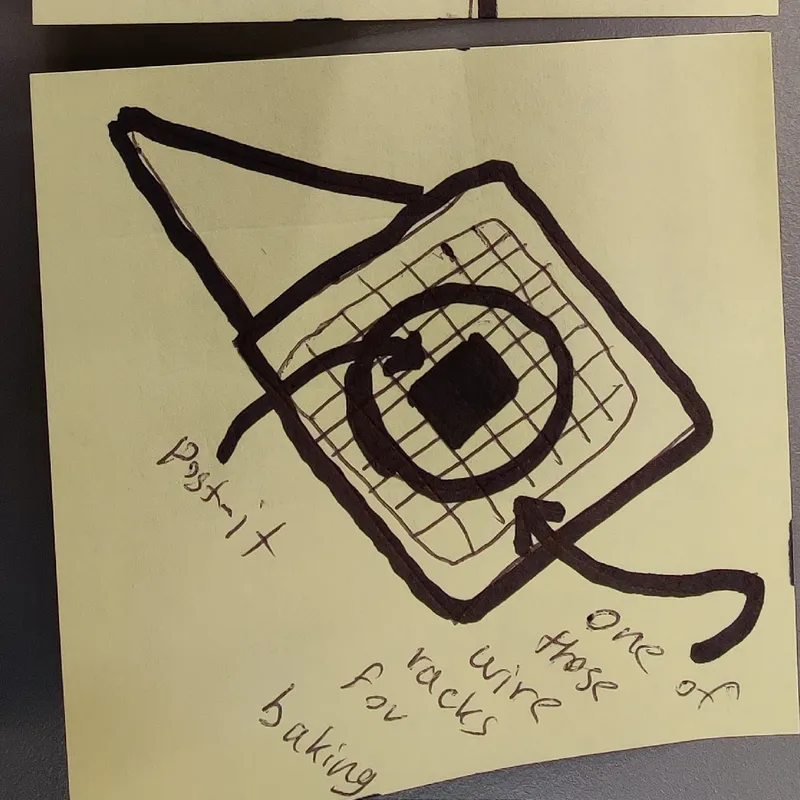 Post-it
one of
those
wire
racks
for
baking